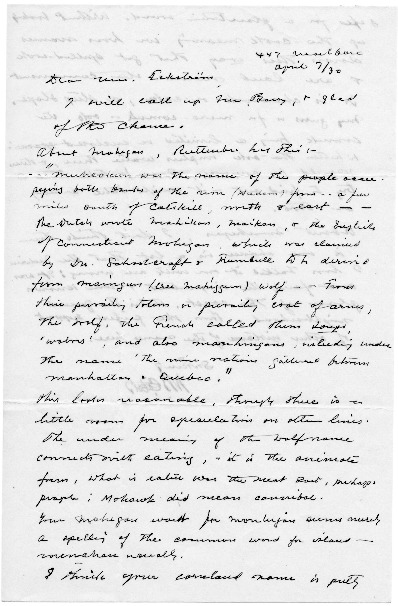 April 7/30
Dear Mrs. Eckstorm,
I will call up Mr. Perry, & glad
of the chance.
About Mohegan, Ruttenber has this:-
"Muhheakun was the name of the people occu-
pying both banks of the river (Hudson) from .. a few
miles south of Catskill, north & east - -
The Dutch wrote Mahikan, Maikan, & the English
of Connecticut Mohegan - which was claimed
by Dr. Schoolcraft & Trumbull to be derived
from maingun (Cree mahéggun) wolf - - From
their prevailing totem or prevailing coat of arms,
the wolf, the French called them Loups,
'wolves', and also including under
the name 'the nine nations gathered between
Manhattan & Quebec.'"
This looks reasonable, though there is a
little room for speculation on other lines.
The under meaning of the wolf-name
connects with eating, - it is the animate
form, what is eaten was the meat sort, perhaps
people; Mohawk did mean cannibal.
Your Mohegan word for monhigan seems merely
a spelling of the common word for island -
menahan usually.
I think your name is pretty